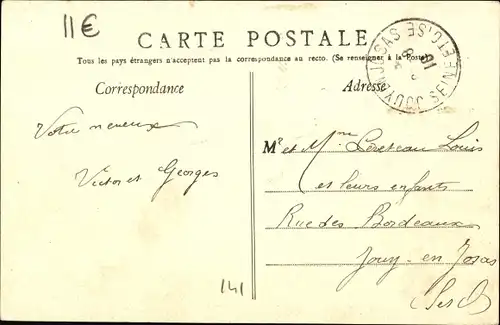 11€
CARTE POSTALE
Tous les pays étrangers n'acceptent pas la correspondance au recto. (Se renseigner à la Poste)
Correspondance
Adresse
JOUY EN JOSAS
SEINE ET OISE
Votre neveux
Victor et Georges
Mr et Mme Louis
et leurs enfants
Rue des Bordeaux
Jouy-en Josas
141